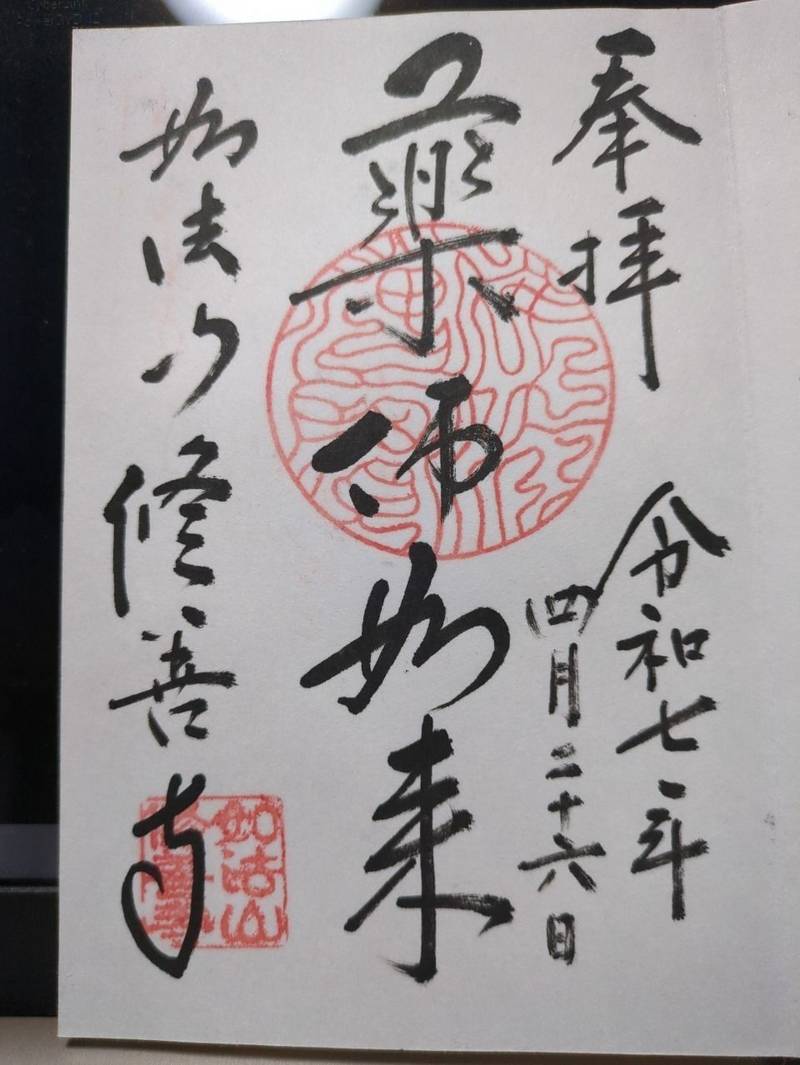 奉拝
令和七年
四月二十六日
薬師如来
如法山
修善寺
如法山
修善寺
CyberLink
PowerDVD 12